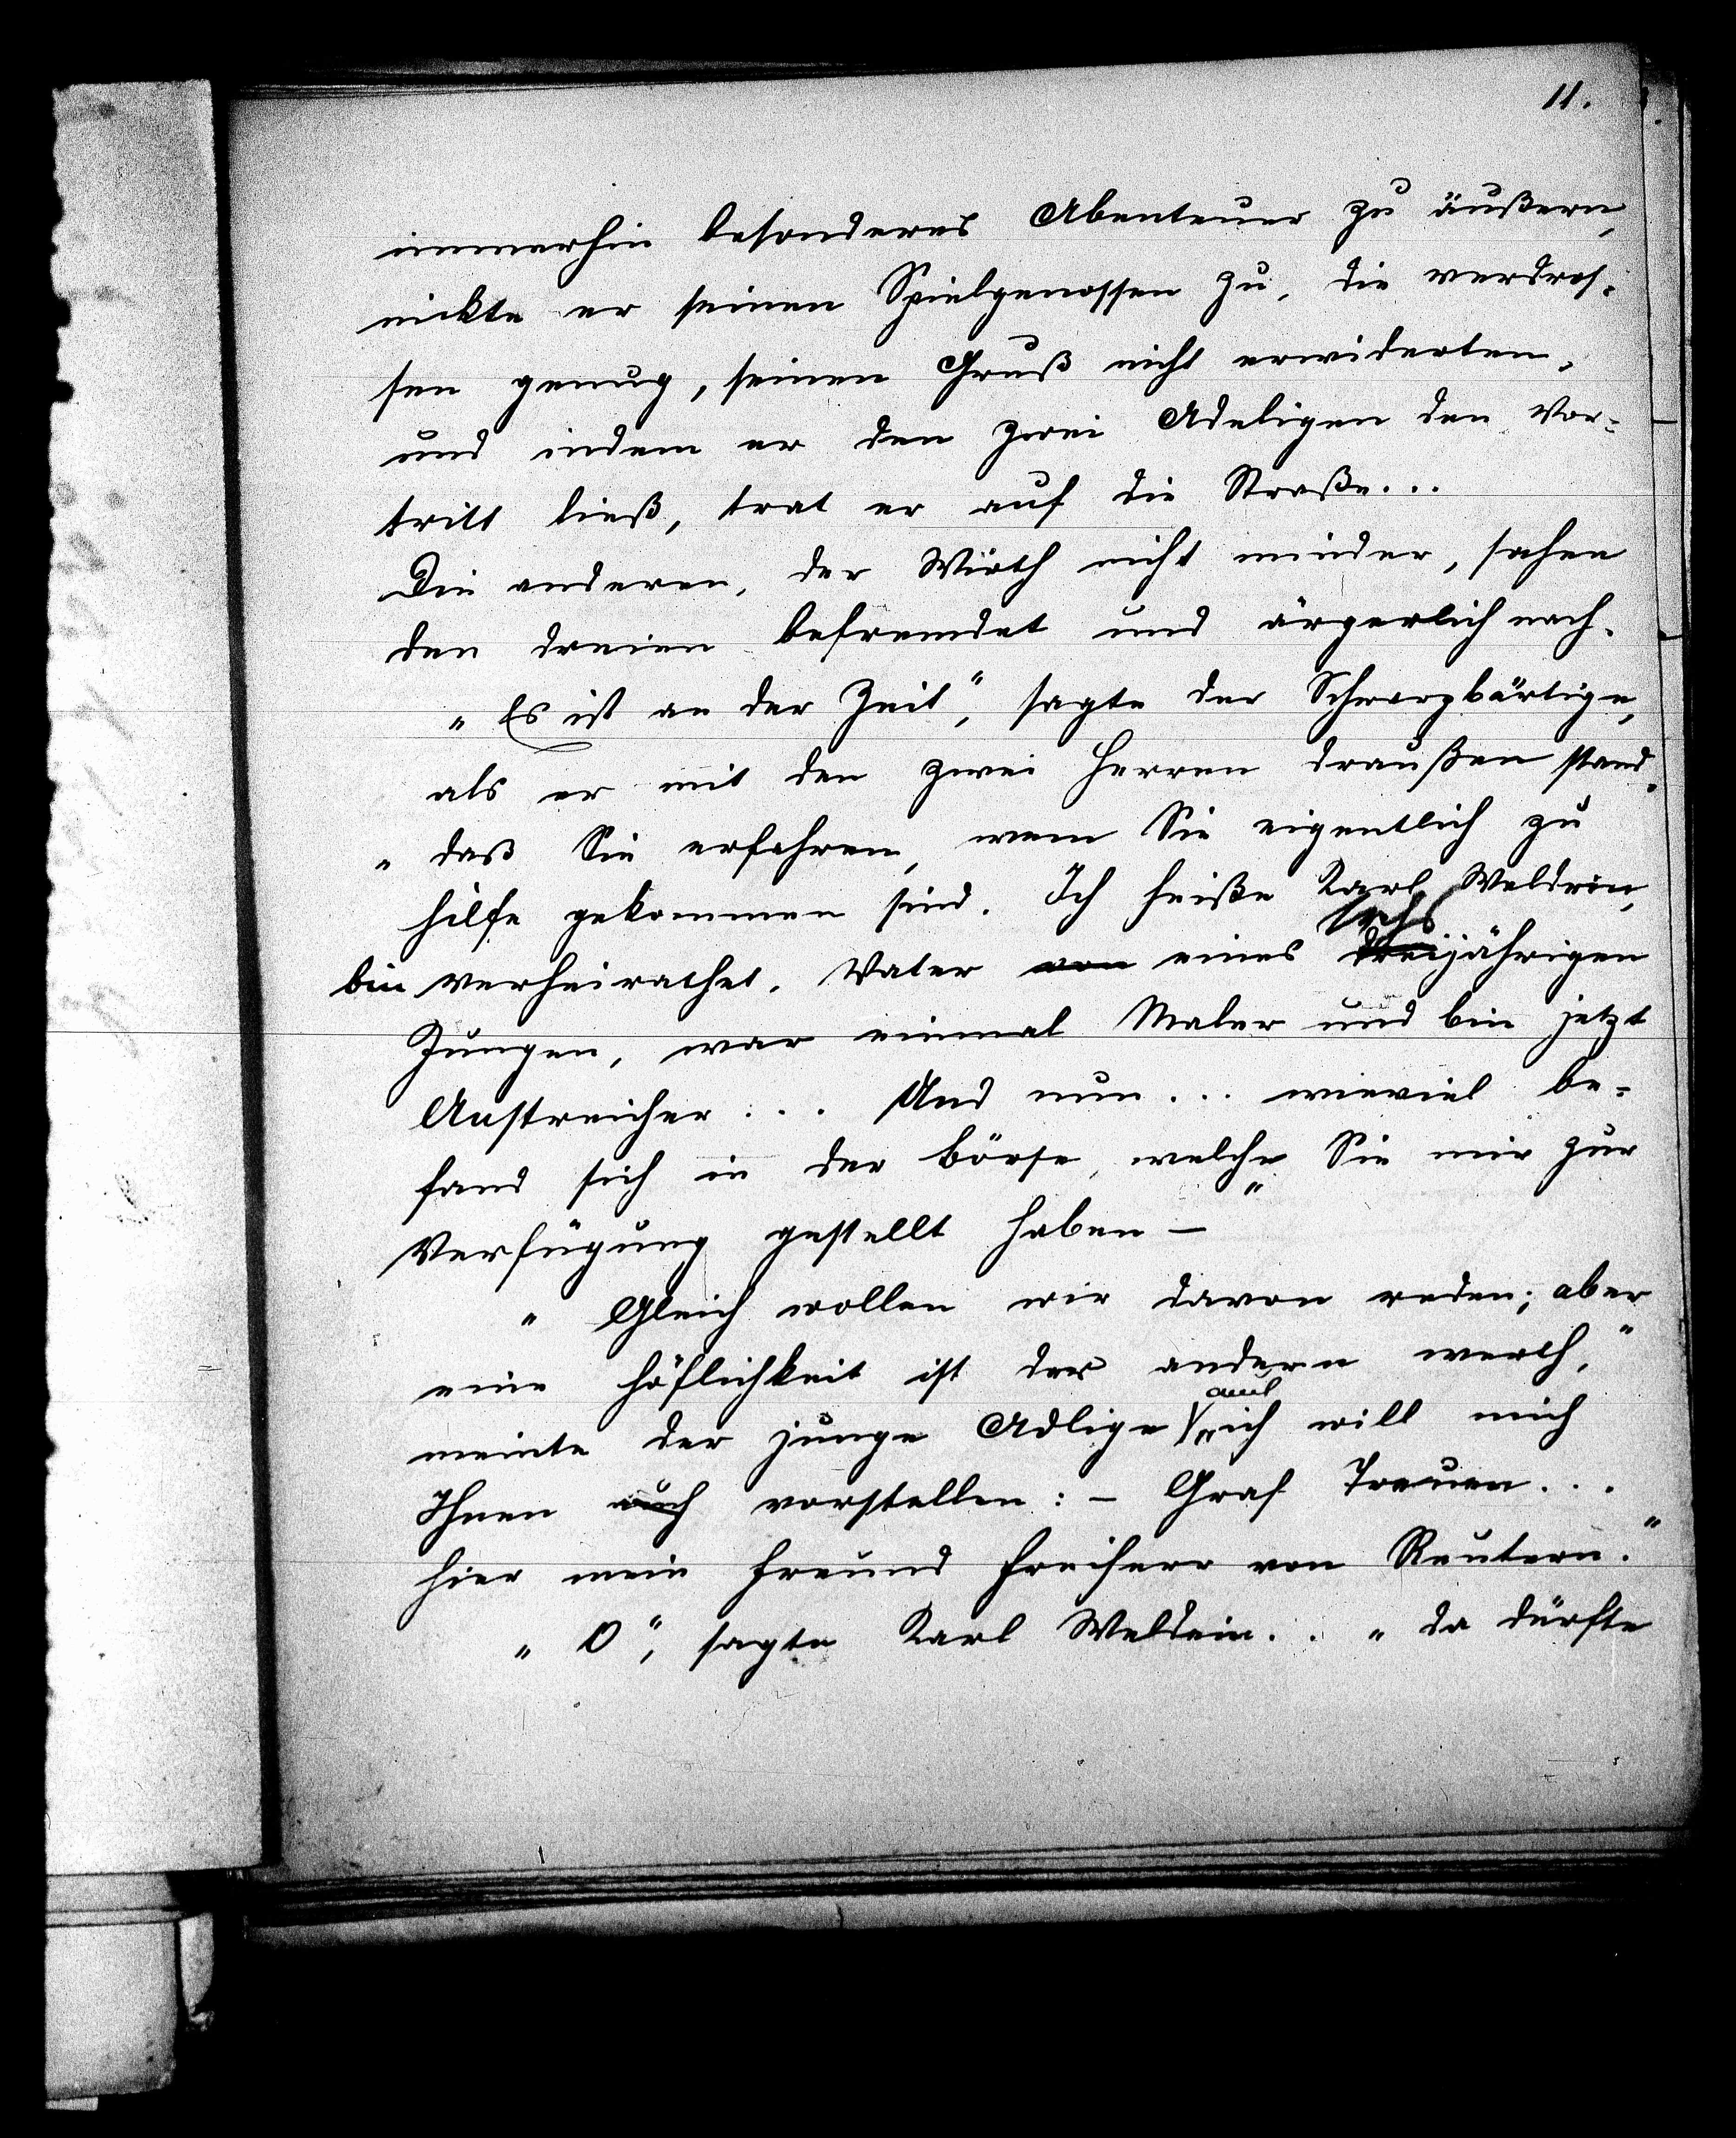 11.
immerhin besonderes Abenteuer zu äußern,
nickte er seinen Spielgenossen zu, die verdros-
sen genug, seinen Gruß nicht erwiderten,
und indem er den zwei Adeligen den Vor-
tritt ließ, trat er auf die Straße...
Die anderen, der Wirth nicht minder, sahen
den dreien befremdet und ärgerlich nach.
„Es ist an der Zeit", sagte der Schwarzbärtige,
als er mit den zwei Herren draußen stand,
„daß Sie erfahren, wem Sie eigentlich zu
Hilfe gekommen sind. Ich heiße Karl Weldein,
sechs
bin verheirathet, Vater von eines dreijährigen
Jungen, war einmal Maler und bin jetzt
Anstreicher... Und nun... wieviel be-
fand sich in der Börse, welche Sie mir zur
Verfügung gestellt haben –"
„Gleich wollen wir davon reden; aber
eine Höflichkeit ist der andern werth,"
auch
meinte der junge Adlige „ich will mich
Ihnen auch vorstellen: – Graf Treuen...
hier mein Freund Freiherr von Reutern."
„O", sagte Karl Weldein.. „da dürfte